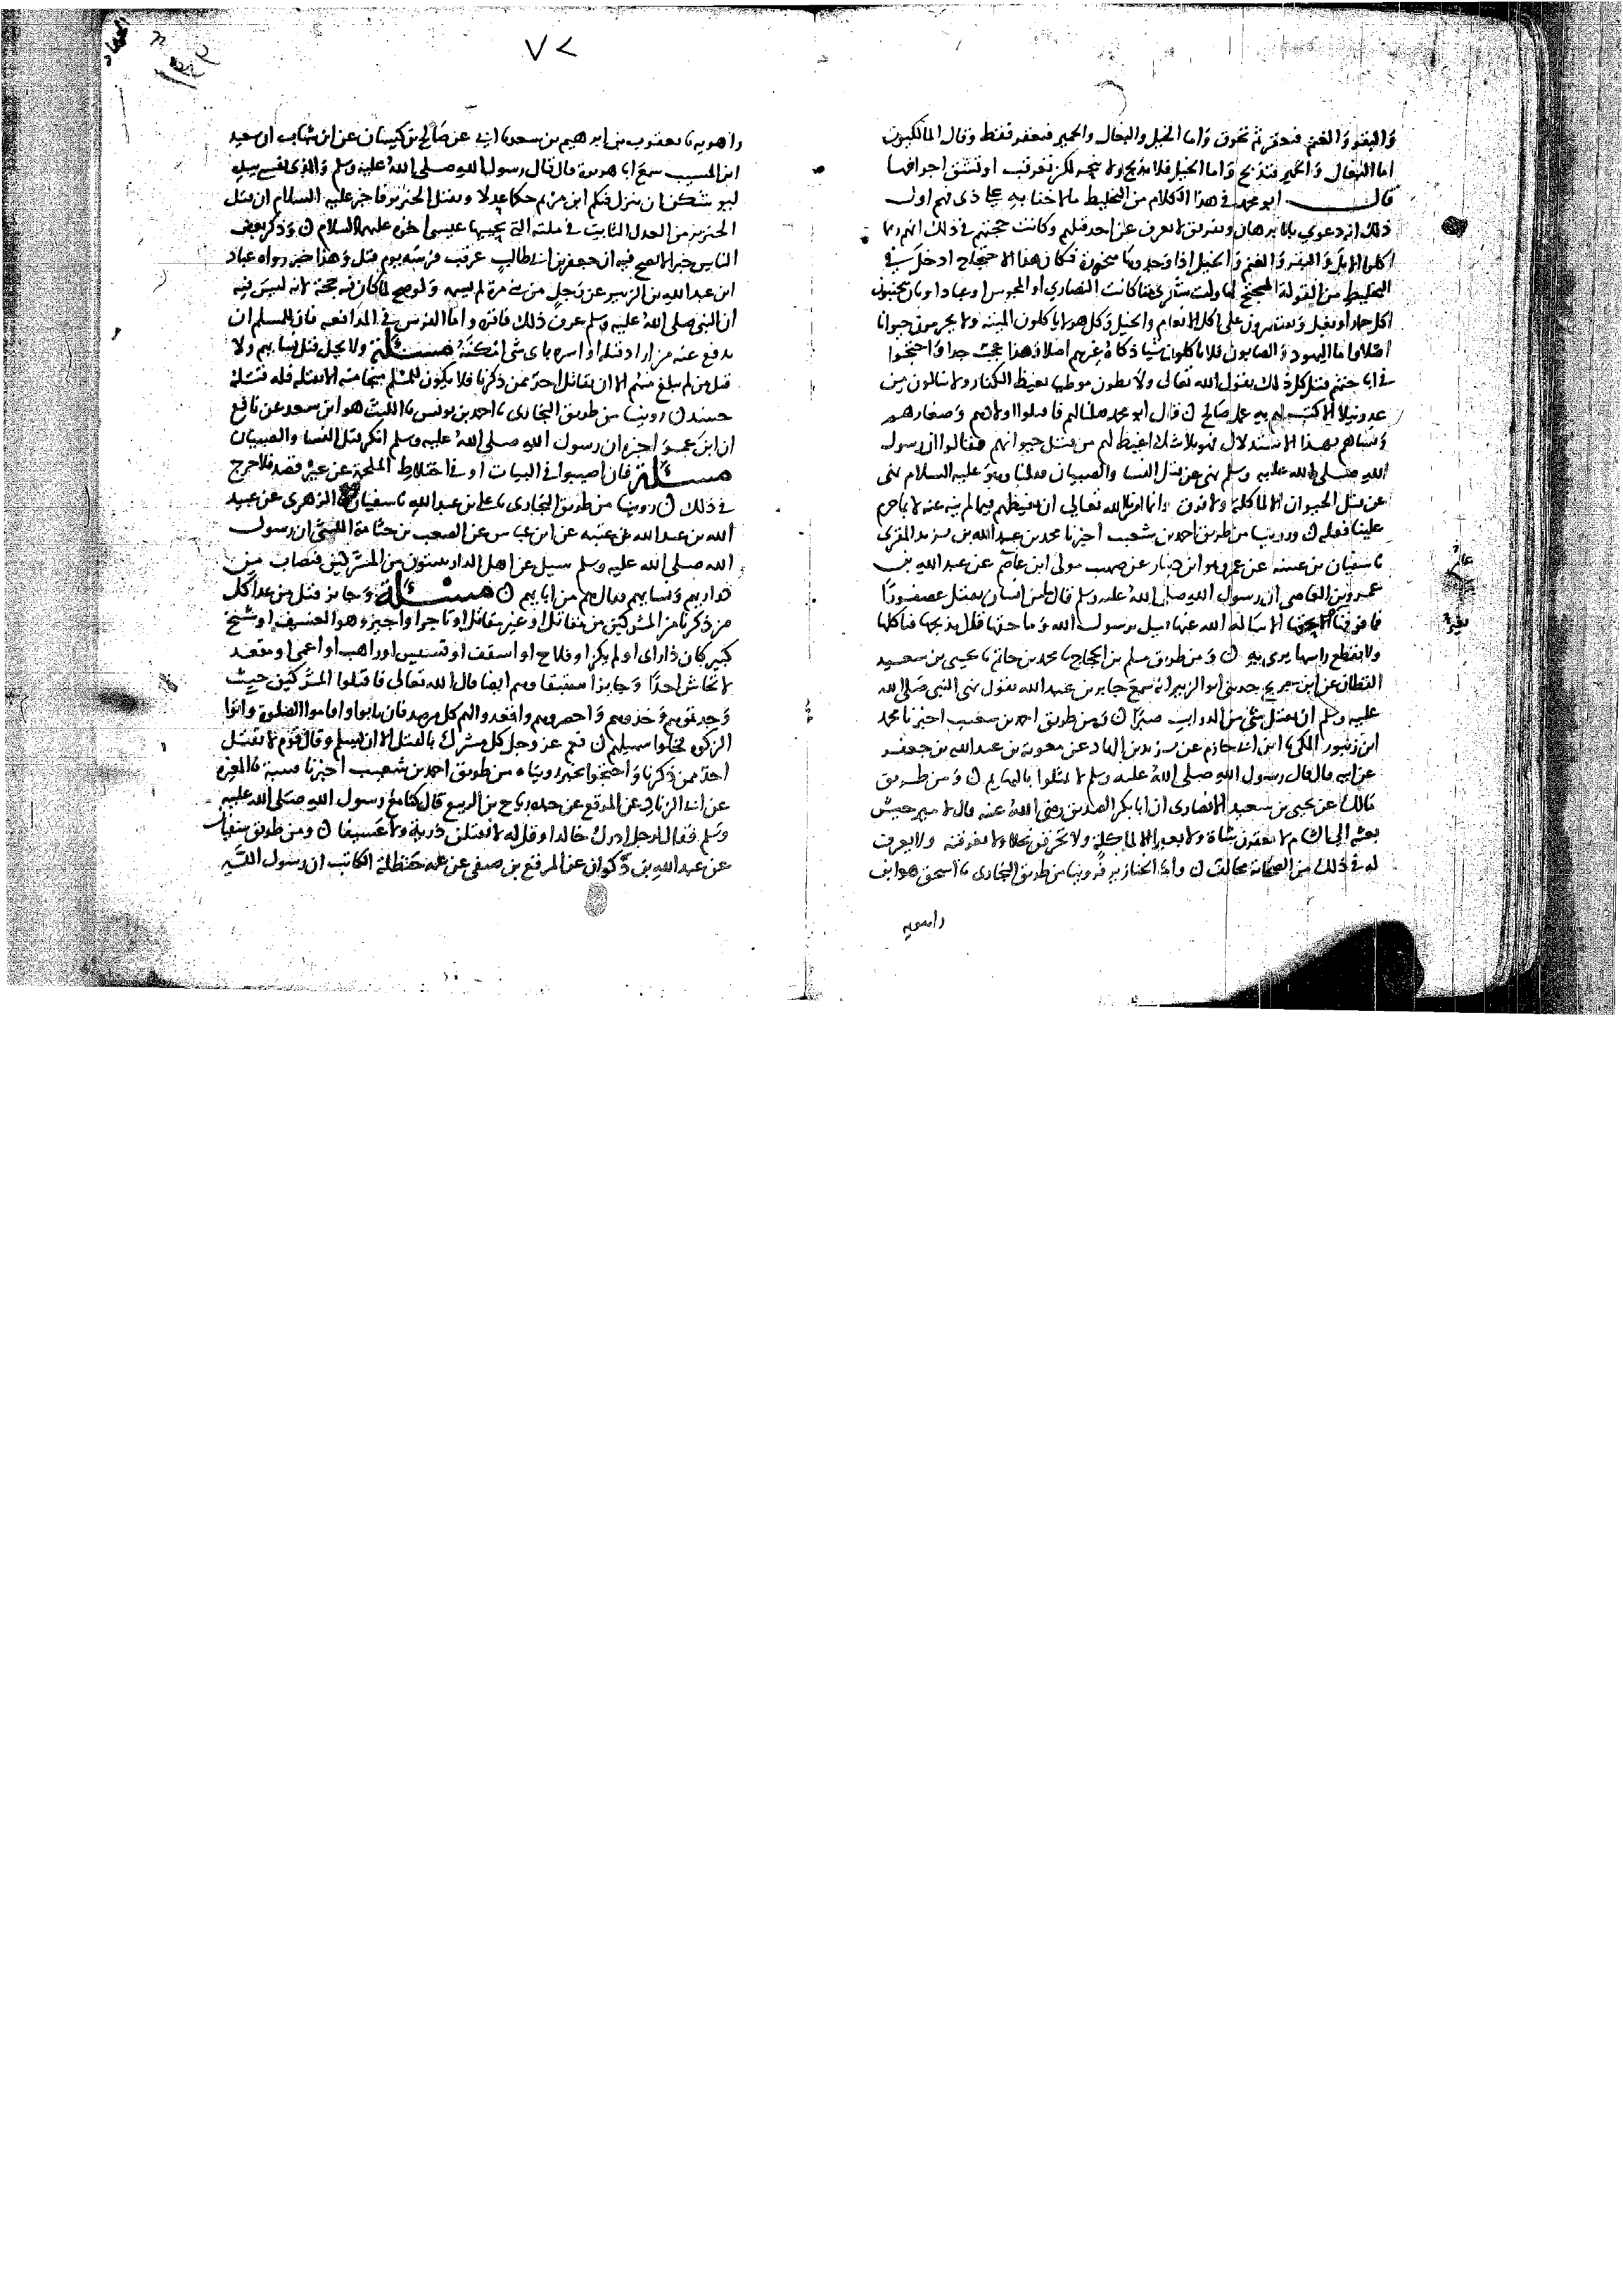 والبقر والغنم فتعقر ثم تحرق واما الخيل والبغال والحمير فتعقر فقط وقال المالكيون
اما البغال والحمير فتذبح واما الخيل فلا تذبح ولا تعقر لكن تعرقب او تشق اجوافها
قال ابو محمد في هذا الكلام من التخليط ما لا خفا به على ذي فهم اول
ذلك انه دعوى بلا برهان وتفريق لا يعرف عن احد قبلهم وكانت حجتهم في ذلك انهم ربما
اكلوا الابل والبقر والغنم والخيل اذا وجدوها منحورة فكان هذا الاحتجاج ادخل في
التخليط من القولة المحتج لها وليت شعري متى كانت النصارى او المجوس او عباد الاوثان يجتنبون
اكل حمار او بغل ويقتصرون على اكل الانعام والخيل وكل هولا ياكلون الميتة ولا يحرمون حيوانا
اصلا واما اليهود والصابون فلا ياكلون شيا ذكاه غيرهم اصلا وهذا عجب جدا واحتجوا
في اباحتهم قتل كل ذلك بقول الله تعالى ولا يطون موطيا يغيظ الكفار ولا ينالون من
عدو نيلا الا كتب لهم به عمل صالح ن قال ابو محمد فقلنا لهم فاقتلوا اولادهم وصغارهم
ونساهم بهذا الاستدلال فهو بلا شك اغيظ لهم من قتل حيوانهم فقالوا ان رسول
الله صلى الله عليه وسلم نهى عن قتل النسا والصبيان فقلنا وهو عليه السلام نهى
عن قتل الحيوان الا لماكلة ولا فرق وانما امرنا الله تعالى ان نغيظهم فيما لم ينه عنه لا بما حرم
علينا فعله ن وروينا من طريق احمد بن شعيب اخبرنا محمد بن عبد الله بن يزيد المقري
نا سفيان بن عيينه عن عمرو هو ابن دينار عن صهيب مولى ابن عامر عن عبد الله بن
عمرو بن العاصي ان رسول الله صلى الله عليه وسلم قال ما من انسان يقتل عصفورا
فما فوقها بغير حقها الا سأله الله عنها قيل يرسول الله وما حقها قال يذبحها فياكلها
ولا يقطع راسها يرمى به ن ومن طريق مسلم بن الحجاج نا محمد بن حاتم نا يحيى بن سعيد
القطان عن ابن جريج حدثني ابو الزبير انه سمع جابر بن عبد الله يقول نهى النبي صلى الله
عليه وسلم ان يقتل شي من الدواب صبرا ن ومن طريق احمد بن شعيب اخبرنا محمد
ابن زنبور المكي نا ابن ابي حازم عن يزيد بن الهاد عن معوية بن عبد الله بن جعفر
عن ابيه قال قال رسول الله صلى الله عليه وسلم لا تمثلوا بالبهايم ن ومن طريق
مالك عن يحيى بن سعيد الانصاري ان ابا بكر الصديق رضي الله عنه قال لامير جيش
بعثه الى الشام لا تعقرن شاة ولا بعيرا الا لماكلة ولا تحرقن نحلا ولا تغرقنه ولا يعرف
له في ذلك من الصحابة مخالف ن واما الخنازير فروينا من طريق البخاري نا اسحق هو ابن
راهويه
راهويه نا يعقوب بن ابرهيم بن سعد نا ابي عن صالح بن كيسان عن ابن شهاب ان سعيد
ابن المسيب سمع ابا هريرة قال قال رسول الله صلى الله عليه وسلم والذي نفسي بيده
ليوشكن ان ينزل فيكم ابن مريم حكما عدلا ويقتل الخنزير فاخبر عليه السلام ان قتل
الخنزير من العدل الثابت في ملته التي يحييها عيسى اخوه عليهما السلام ن وذكر بعض
الناس خبرا لا يصح فيه ان جعفر بن ابي طالب عرقب فرسه يوم قتل وهذا خبر رواه عباد
ابن عبد الله بن الزبير عن رجل من بني مرة لم يسمه ولو صح لما كان فيه حجة لانه ليس فيه
ان النبي صلى الله عليه وسلم عرف ذلك فاقره واما الفرس في المدافعه فان للمسلم ان
يدفع عنه من اراد قتله او اسره باي شي امكنه مسئلة ولا يحل قتل نسايهم ولا
قتل من لم يبلغ منهم الا ان يقاتل احد ممن ذكرنا فلا يكون للمسلم منجا منه الا بقتله فله قتله
حينيذ ن روينا من طريق البخاري نا احمد بن يونس نا الليث هو ابن سعد عن نافع
ان ابن عمر اخبره ان رسول الله صلى الله عليه وسلم انكر قتل النسا والصبيان
مسئلة فان اصيبوا في البيات او في اختلاط الملحمة عن غير قصد فلا حرج
في ذلك ن روينا من طريق البخاري نا علي بن عبد الله نا سفيان الزهري عن عبيد
الله بن عبد الله بن عتبه عن ابن عباس عن الصعب بن جثامة الليثي ان رسول
الله صلى الله عليه وسلم سيل عن اهل الدار يبيتون من المشركين فيصاب من
ذراريهم ونسايهم فقال هم من ابايهم ن مسئلة وجايز قتل من عدا كل
من ذكرنا من المشركين من مقاتل او غير مقاتل او تاجر او اجير وهو العسيف او شيخ
كبير كان ذا راي او لم يكن او فلاح او اسقف او قسيس او راهب او اعمى او مقعد
لا تحاش احدا وجايز استبقاوهم ايضا قال الله تعالى فاقتلوا المشركين حيث
وجدتموهم وخذوهم واحصروهم واقعدوا لهم كل مرصد فان تابوا واقاموا الصلوة واتوا
الزكوة فخلوا سبيلهم ن فعم عز وجل كل مشرك بالقتل الا ان يسلم وقال قوم لا يقتل
احد ممن ذكرنا واحتجوا بخبر رويناه من طريق احمد بن شعيب اخبرنا قتيبة نا المغيرة
عن ابي الزناد عن المرقع عن جده رباح بن الربيع قال كنا مع رسول الله صلى الله عليه
وسلم فقال لرجل ادرك خالدا وقل له لا تقتلن ذرية ولا عسيفا ن ومن طريق سفيان
عن عبد الله بن ذكوان عن المرقع بن صيفي عن عمه حنظلة الكاتب ان رسول الله